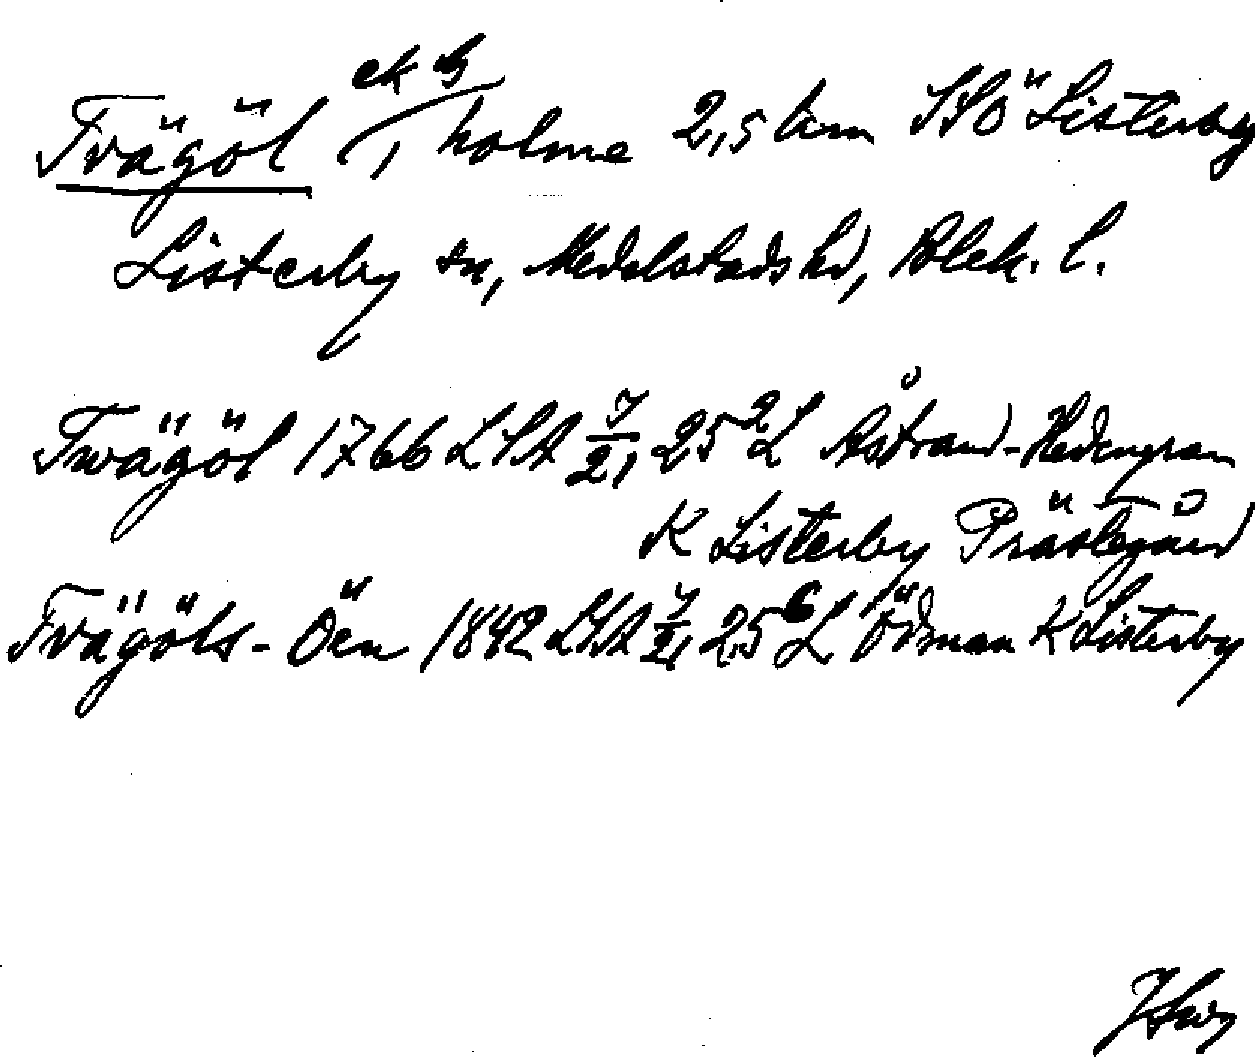 Tvägöl ek b, holme 2,5 km SSÖ Listerby
Listerby sn, Medelstads hd, Blek. l.
Twägöl 1766 LSA 7/21, 25 2 L Åstrand-Hedengran
K Listerby Prästegård
Tvägöls-Öen 1842 LSA 7/21, 25 6 L Ödman K Listerby